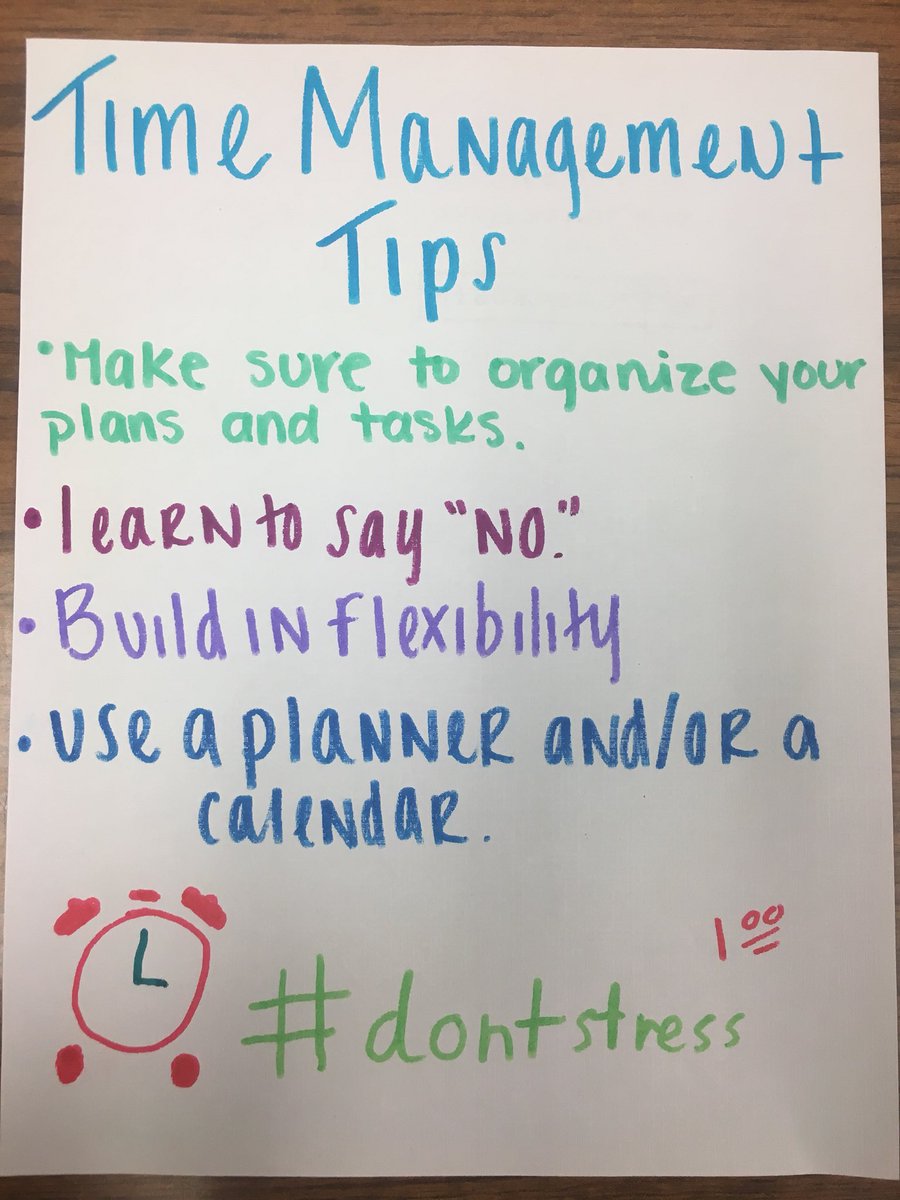 Time Management
Tips
• Make sure to organize your
plans and tasks.
• learn to say "NO."
• Build in flexibility
• use a planner and/or a
calendar.
100
#dontstress